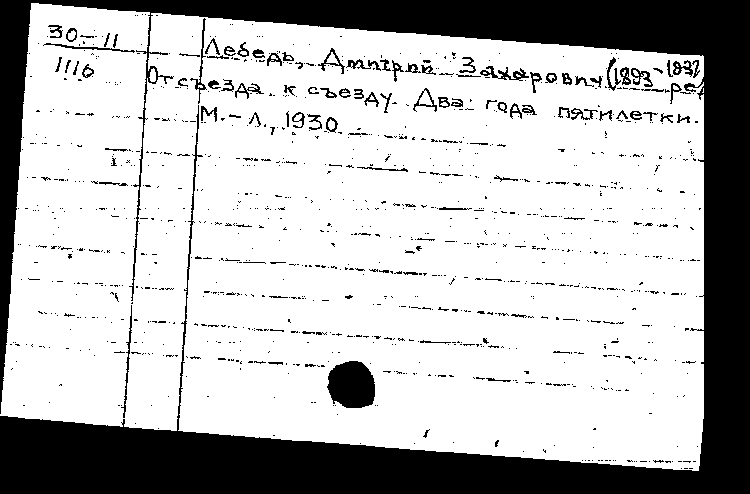 30-11
1116
Лебедь, Дмитрий Захарович (1893-193
ред
От съезда к съезду. Два года пятилетки.
М.-Л., 1930